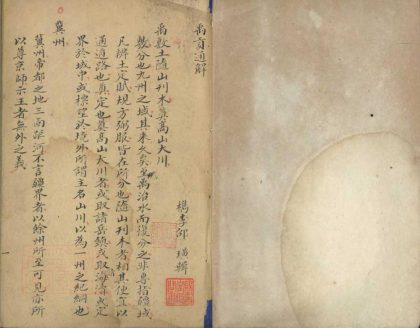 禹貢通解
檇李邵璜輯
禹敷土隨山刊木奠高山大川
敷分也九州之域其来久矣至禹治水而復分之非專指疆域
凡辨土定賦規方弼服皆在所分也隨山刊木者相其便宜以
通道路也奠定也奠高山大川者或取諸岳鎮或取海濤或定
界於域中或標望於境外所謂主名山川以為一州之紀綱也
冀州
冀州帝都之地三面距河不言疆界者以餘州所至可見亦所
以尊京師示王者無外之義